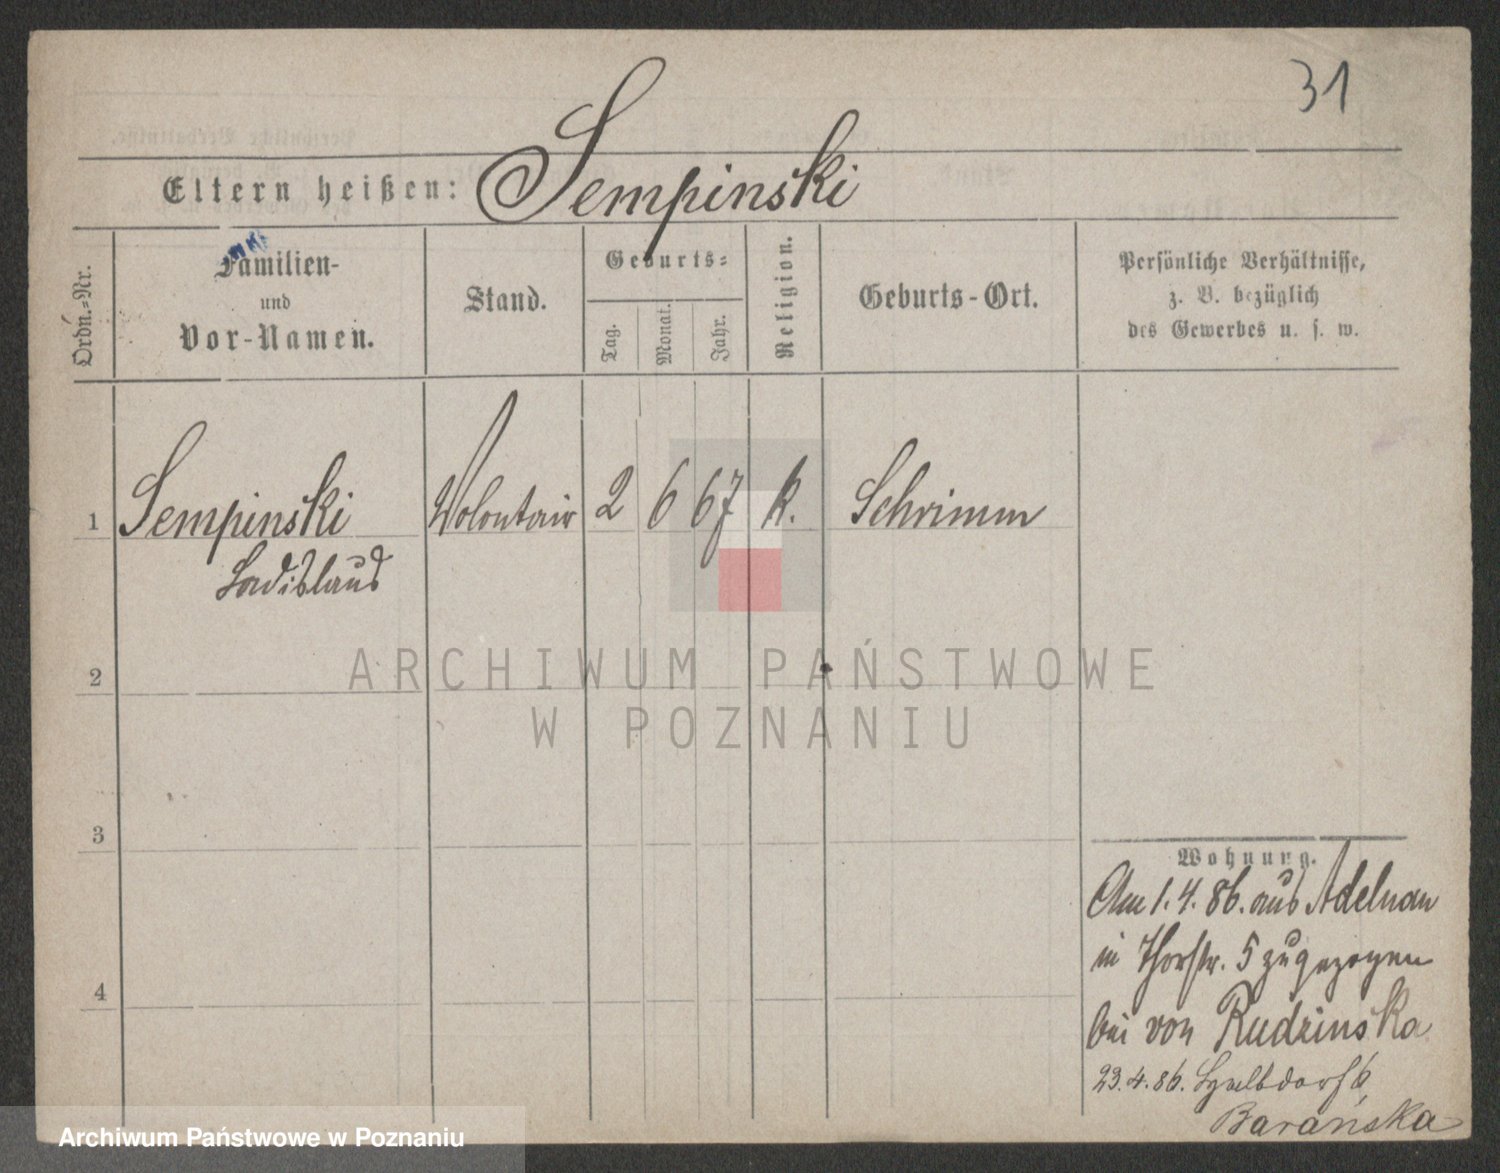 31
Eltern heißen: Sempinski
Ordn.-Nr.
Familien-
und
Vor-Namen.
Stand.
Geburts-
Tag.
Monat.
Jahr.
Religion.
Geburts-Ort.
Persönliche Verhältnisse,
z. B. bezüglich
des Gewerbes u. s. w.
1 Sempinski Volontair 2 6 67 k. Schrimm
Ladislaus
2
3
4
Wohnung.
Am 1.4.86. aus Adelnau
in Thorstr. 5 zugezogen
bei von Rudzinska
23.4.86.
Barańska
ARCHIWUM PAŃSTWOWE
W POZNANIU
Archiwum Państwowe w Poznaniu